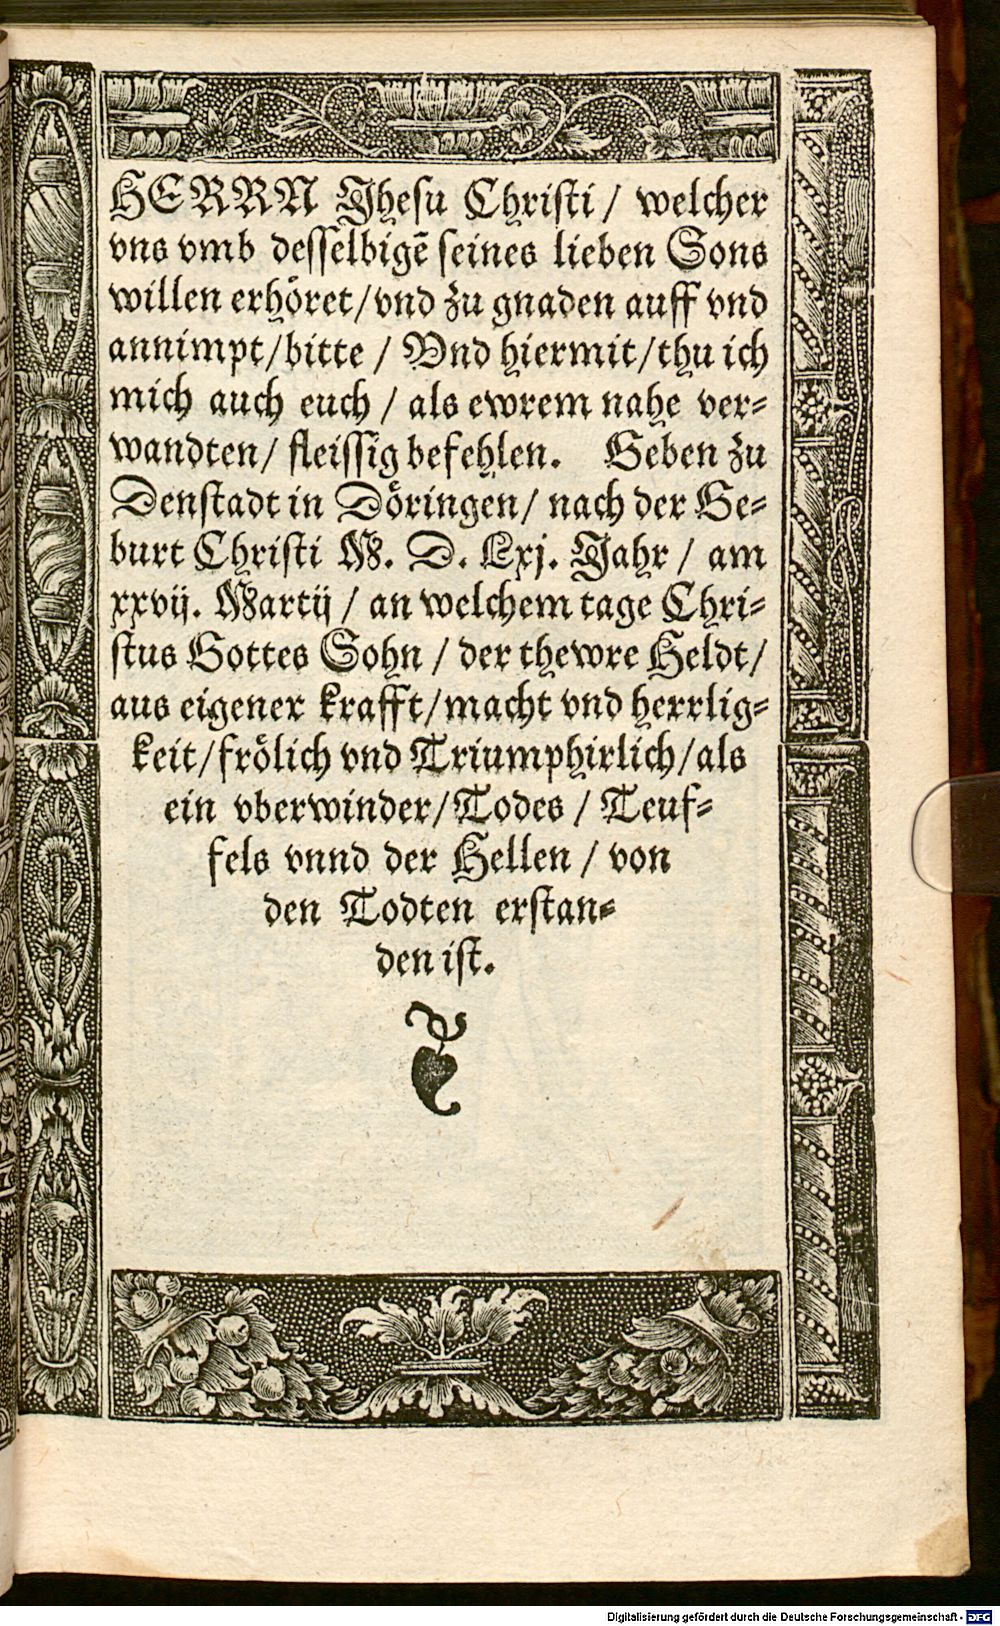 HERRN Jhesu Christi / welcher
vns vmb desselbigẽ seines lieben Sons
willen erhöret / vnd zu gnaden auff vnd
annimpt / bitte / Vnd hiermit / thu ich
mich auch euch / als ewrem nahe ver⸗
wandten / fleissig befehlen. Geben zu
Denstadt in Döringen / nach der Ge⸗
burt Christi M. D. Lxj. Jahr / am
xxvij. Martij / an welchem tage Chri⸗
stus Gottes Sohn / der thewre Heldt /
aus eigener krafft / macht vnd herrlig⸗
keit / frölich vnd Triumphirlich / als
ein vberwinder / Todes / Teuf⸗
fels vnnd der Hellen / von
den Todten erstan⸗
den ist.
Digitalisierung gefördert durch die Deutsche Forschungsgemeinschaft - DFG